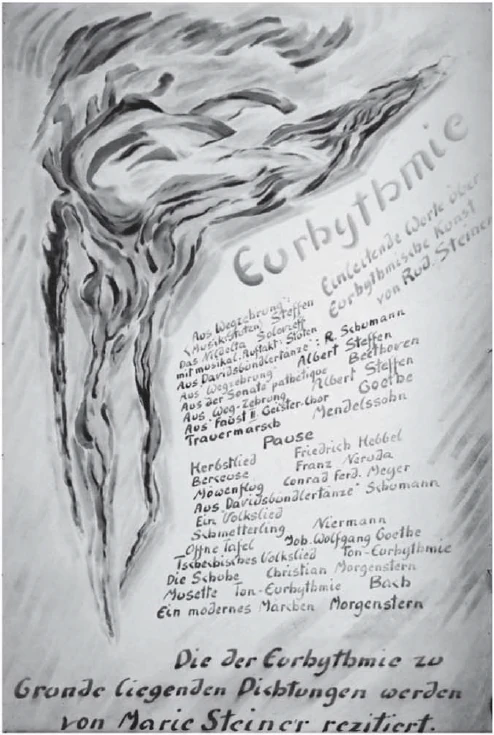 Eurhythmie
Einleitende Worte über
Eurhythmische Kunst
von Rud. Steiner
Aus Wegzehrung"
Steffen
Das Nicdelta Solovieff
mit musikal. Auftakt: Stuten
Aus Davidsbündlertänze": R. Schumann
Aus Wegzehrung" Albert Steffen
Aus der Sonate pathetique Beethoven
Aus Weg-Zehrung Albert Steffen
Aus Faust II. Geister-Chor Goethe
Trauermarsch Mendelssohn
Pause
Herbstlied Friedrich Hebbel
Berceuse Franz Neruda
Möwenflug Conrad Ferd. Meyer
Aus Davidsbündlertänze" Schumann
Ein Volkslied
Schmetterling Niermann
Offne Tafel Joh. Wolfgang Goethe
Tschechisches Volkslied Ton-Eurhythmie
Die Schuhe Christian Morgenstern
Musette Ton-Eurhythmie Bach
Ein modernes Märchen Morgenstern
Die der Eurhythmie zu
Grunde liegenden Dichtungen werden
von Marie Steiner rezitiert.